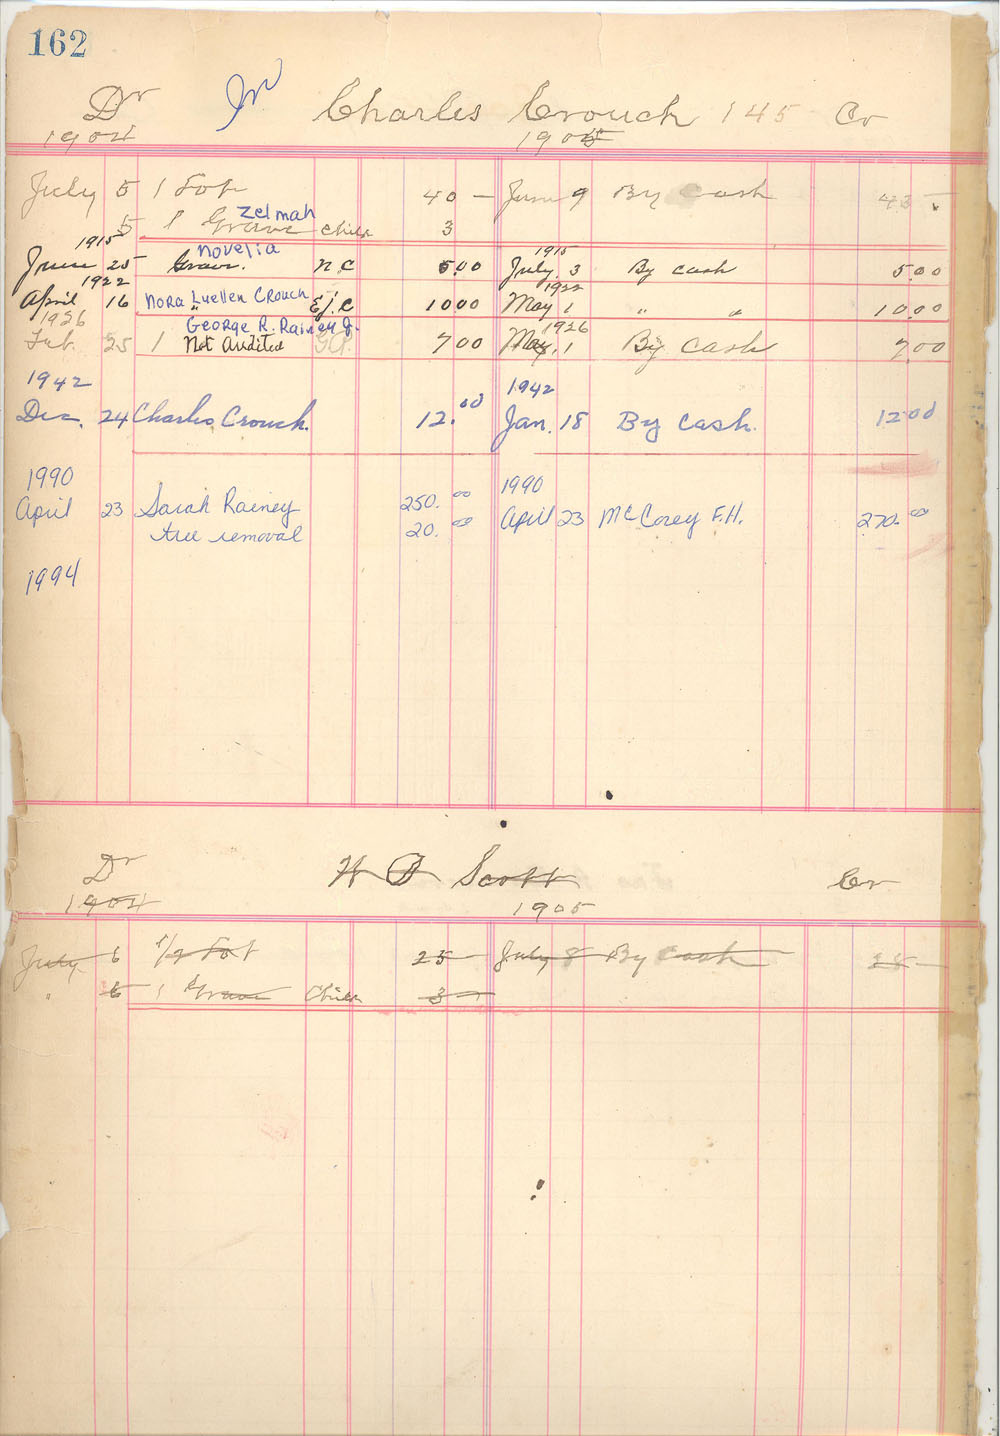 162
Dr Charles Crouch 145 Cr
1904 1905
July 5 1 Lot 40 — June 9 By Cash 43 -
Zelmah
5 1 Grave Child 3
1915 Novelia 1915
June 25 Grave. N.C 5.00 July. 3 By cash 5.00
1922 1922
April 16 Nora Luellen Crouch E.J.C 10 00 May 1 " " 10.00
1926 George R. Rainey J. 1926
Feb. 25 1 Not Audited 7 00 May, 1 By Cash 7.00
1942 1942
Dec. 24 Charles Crouch. 12.00 Jan. 18 By Cash. 12 00
1990 1990
April 23 Sarah Rainey 250.00 April 23 McCorey F.H. 270.00
tree removal 20.00
1994
Dr Scott Cr
1904 1905
July 6 1/2 Lot 25 — July 8 By Cash 28 —
" 6 1 Grave Child 3 —